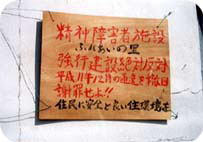 精神障害者施設
ふれあいの里
強行建設絶対反対
平成11年12月の
謝罪せよ!!
住民に安全と良い住環境を